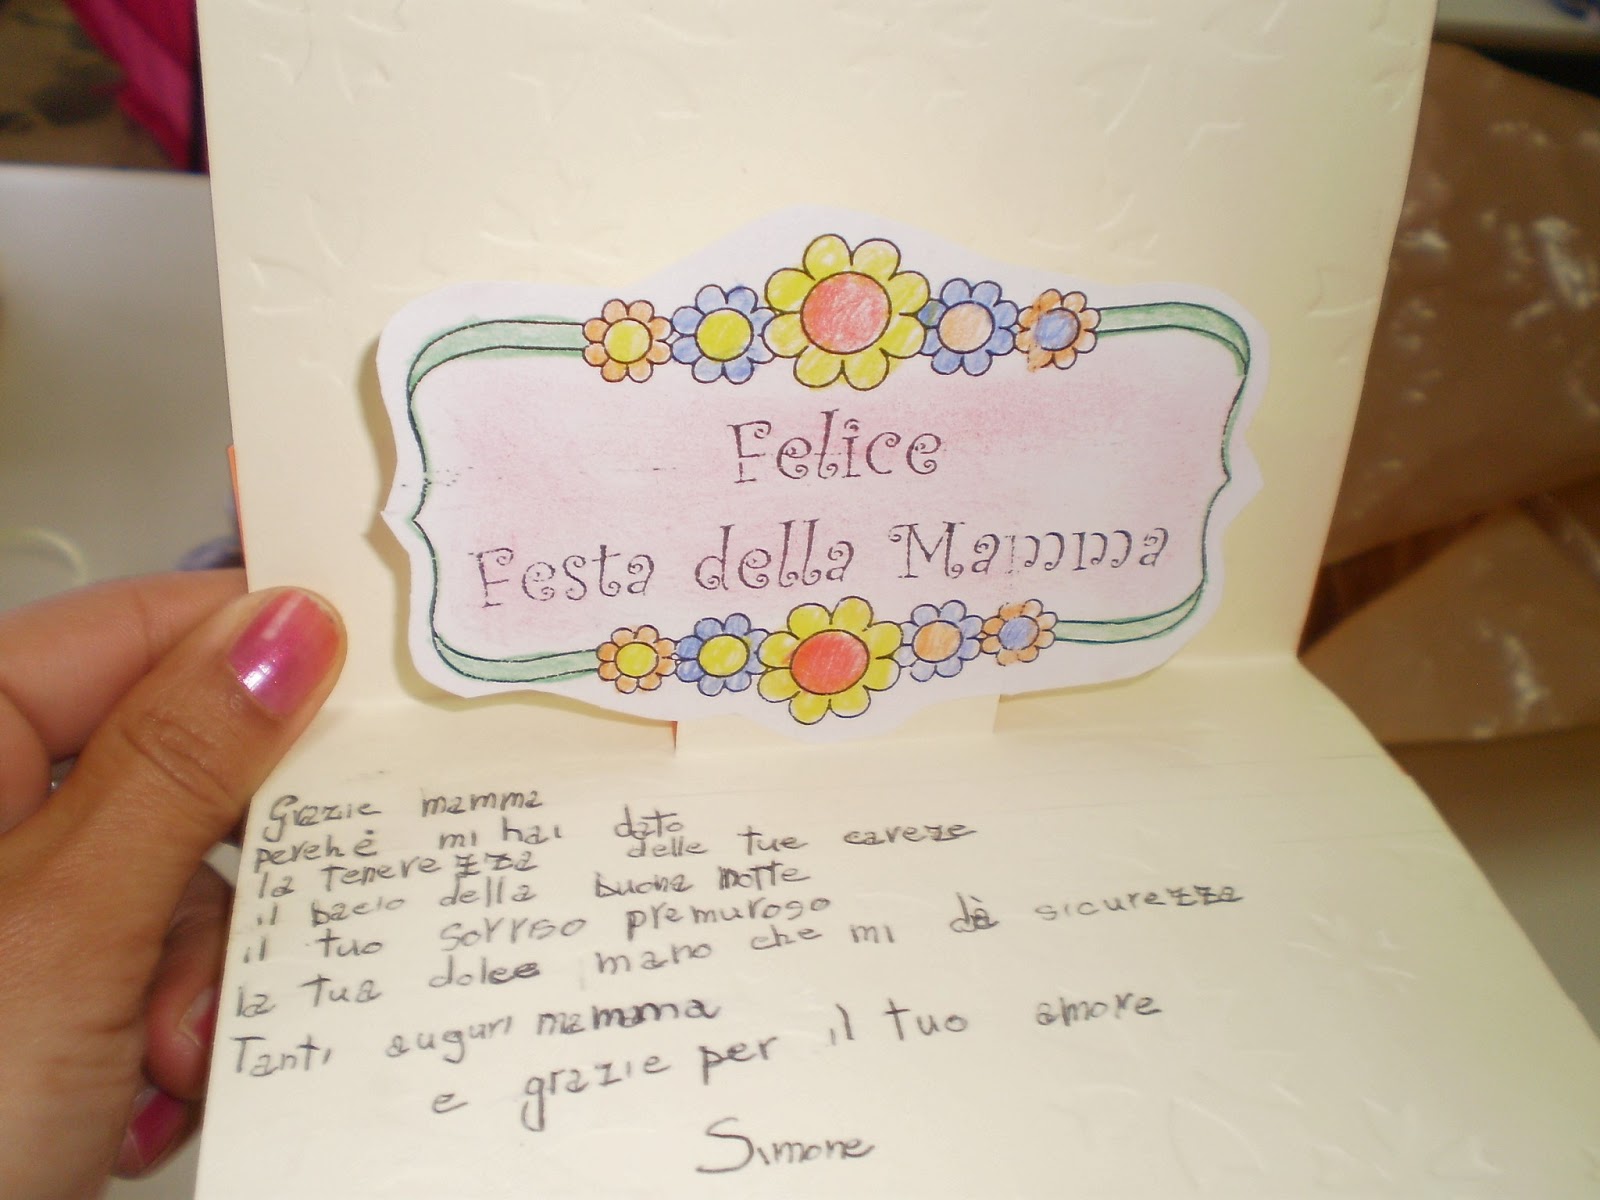 Felice
Festa della Mamma
Grazie mamma
perchè mi hai dato
la tenerezza delle tue careze
il bacio della buona notte
il tuo sorriso premuroso
la tua dolce mano che mi dà sicurezza
Tanti auguri mamma
e grazie per il tuo amore
Simone